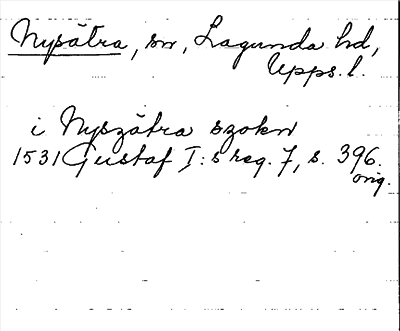 Nysätra, sn, Lagunda hd,
Upps. l.
i Nyszätra szokn
1531 Gustaf I:s reg. 7, s. 396.
orig.